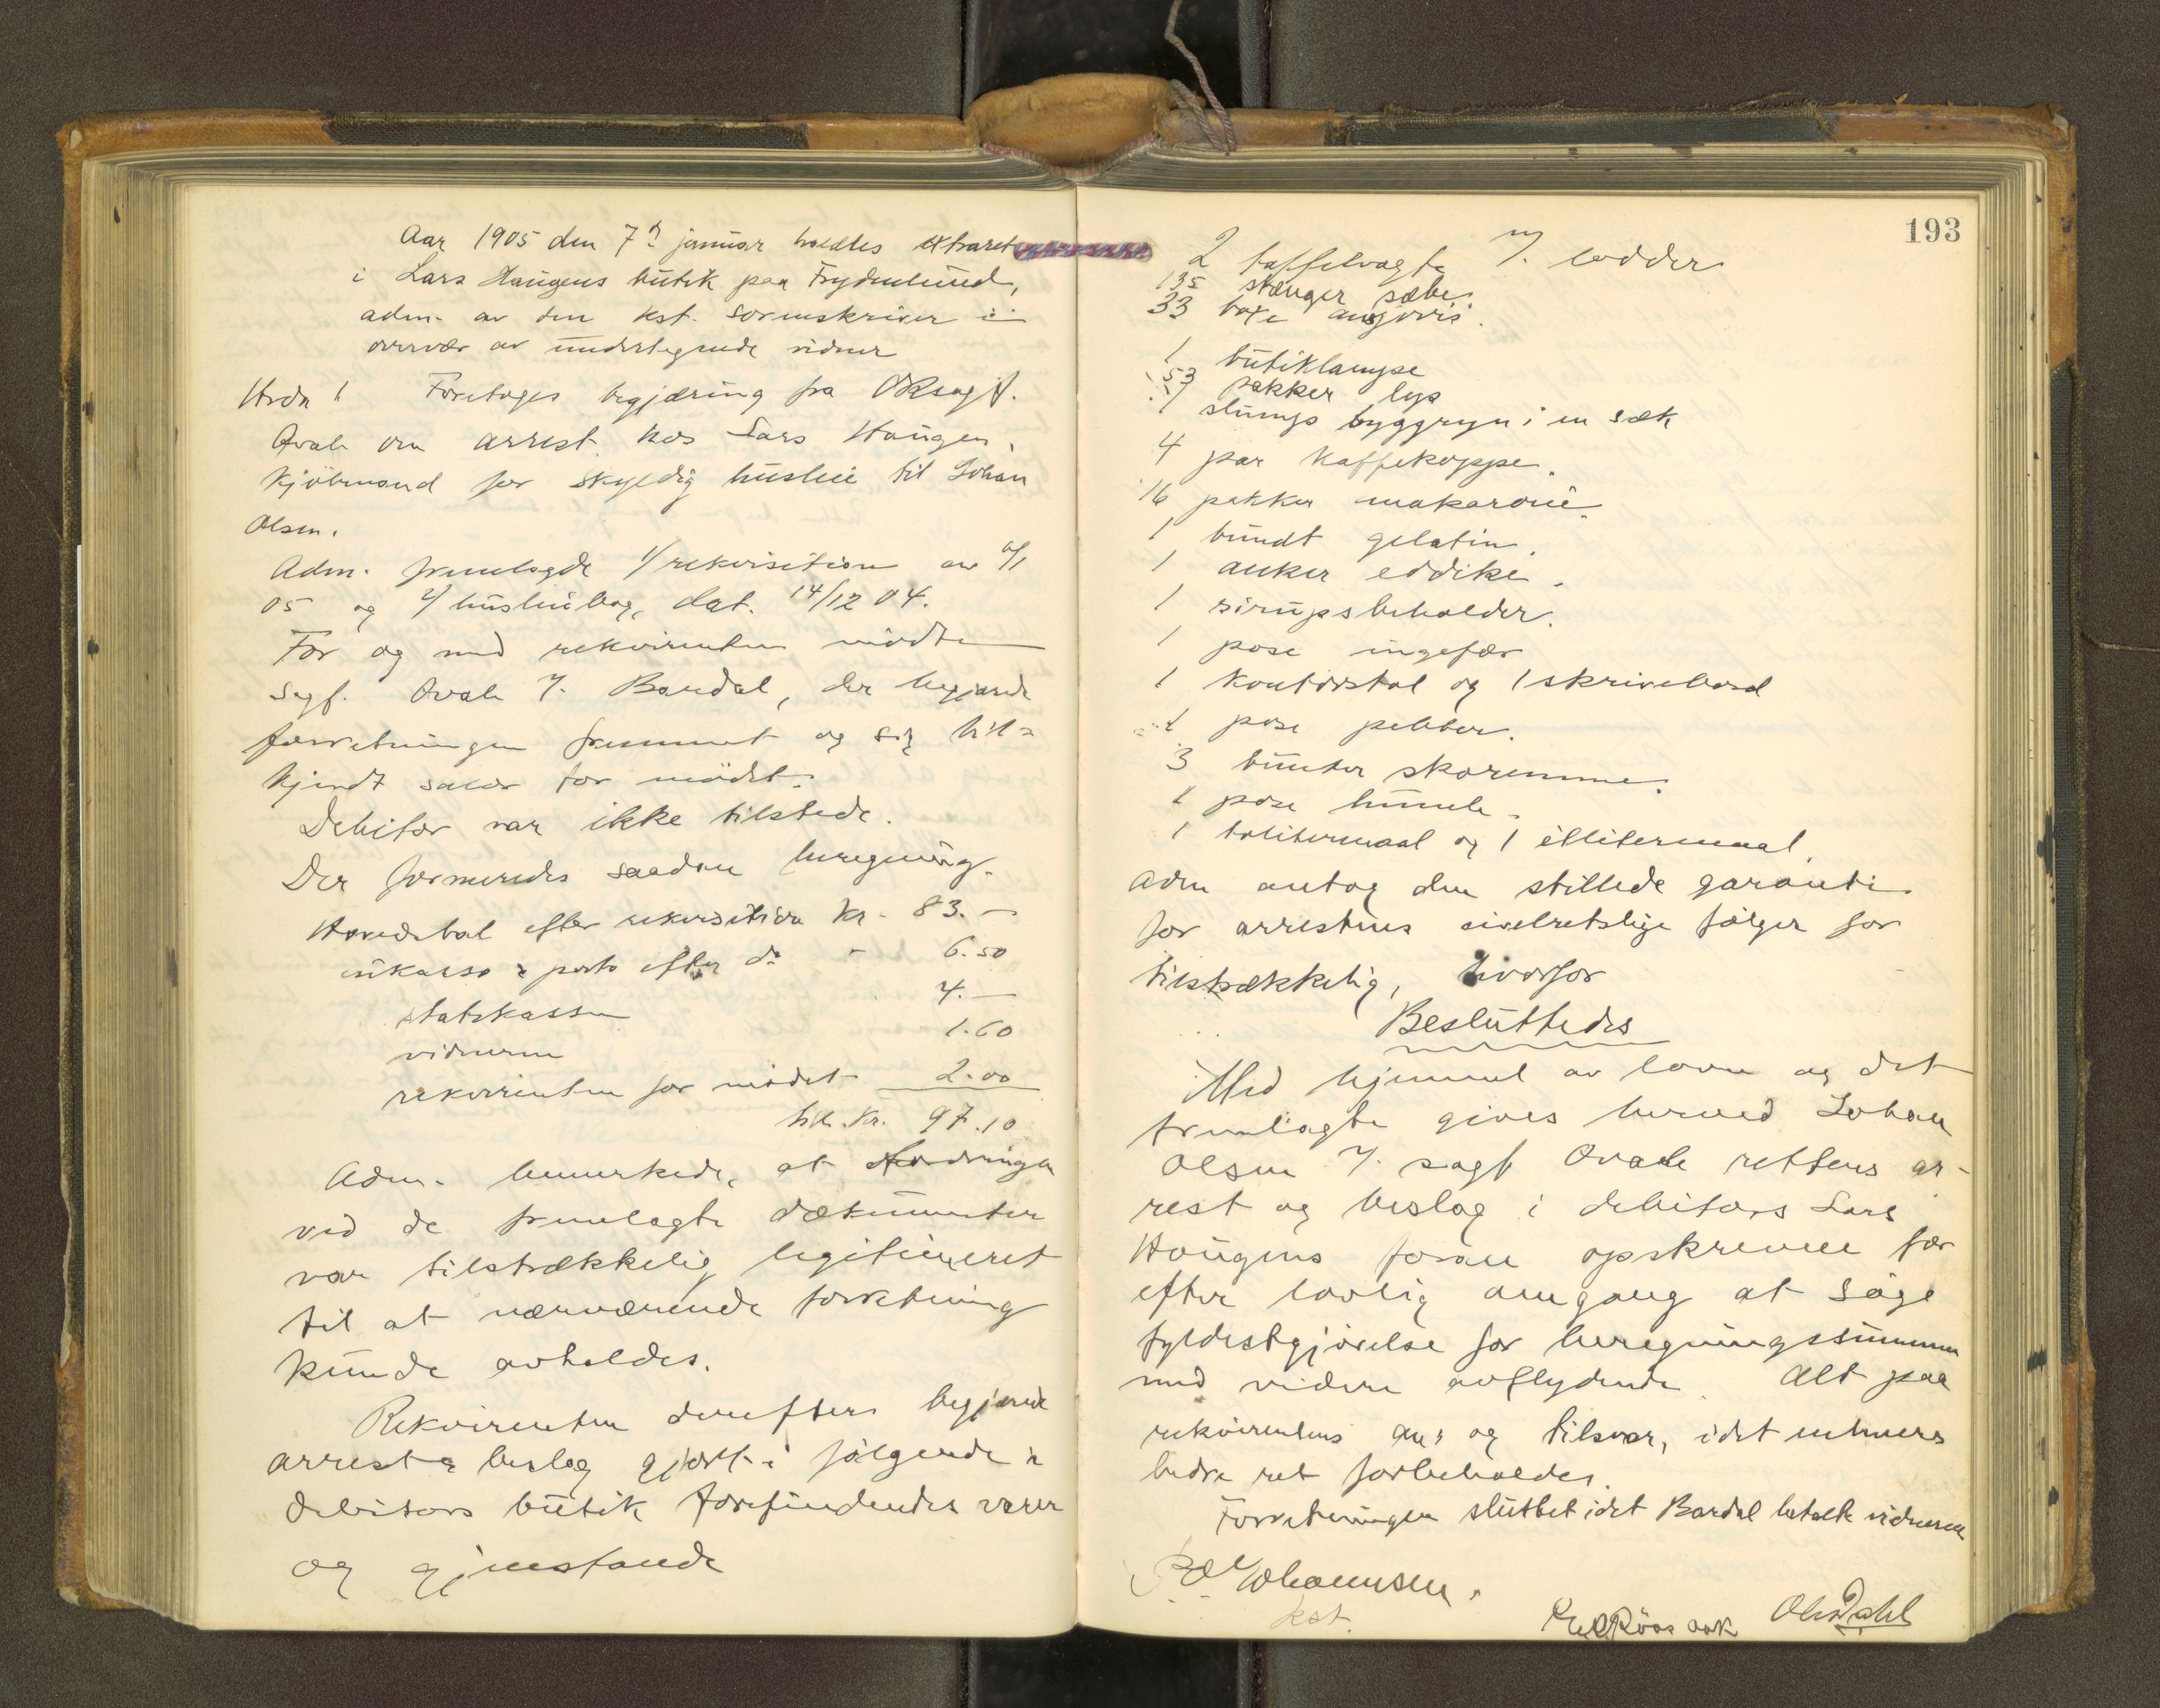 Aar 1905 den 7de januar holdtes extraret
i Lars Haugens butik paa Frydenlund,
adm. av den kst. sorenskriver i
overvær av undertegnede vidner
Hvda
Foretoges begjæring fra ORsagf.
Qvale om arrest hos Lars Haugen,
kjöbmand for skyldig husleie til Johan
Olsen.
Adm. fremlagde 1/ rekvisition av 6/1
05 og 2/ husleiebog, dat. 14/12 04.
For og med rekvirenten mödte
sagf. Qvale v. Bardal, der begjærede
forretningen fremmet og sig til-
kjendt salær for mödet.
Debitor var ikke tilstede.
Der formeredes saadan beregning.
Hovedstol efter rekvisition kr. 83.-
inkasso & porto efter do - 6.50
statskassen 4.-
vidnerne 1.60
rekvirenten for mödet 2.00
tils. kr. 97.10
Adm. bemerkede, at fordringen
ved de fremlagte dokumenter
var tilstrækkelig legitimeret
til at nærværende forretning
kunde avholdes.
Rekvirenten derefter begjærede
arrest & beslag gjort i fölgende i
debitors butik forefindendes varer
og gjenstande
193
2 taffelvægte m/ lodder
135 stænger sæbe.
33 boxe ansjovis.
1 butiklampe
53 pakker lys
1 slumps byggryn i en sæk
4 par kaffekopper.
16 pakker makaroni.
1 bundt gelatin.
1 anker eddike.
1 sirupsbeholder.
1 pose ingefær
1 kontorstol og 1 skrivebord
1 pose pebber.
3 bunter skoremme.
1 pose humle.
1 tolitermaal og 1 etlitermaal.
Adm antog den stillede garanti
for arrestens civelretslige fölger for
tilstrækkelig, hvorfor
Besluttedes
Med hjemmel av loven og det
fremlagte gives herved Johan
Olsen v. sagf Qvale rettens ar-
rest og beslag i debitors Lars
Haugens foran opskrevne for
efter lovlig omgang at söge
fyldestgjörelse for beregningssummen
med videre avflydende. Alt paa
rekvirentens an- og tilsvar, idet enhvers
bedre ret forbeholdes.
Forretningen sluttet idet Bardal betalte vidnerne
Johannsen.
kst.
Röos
Ole Dahl